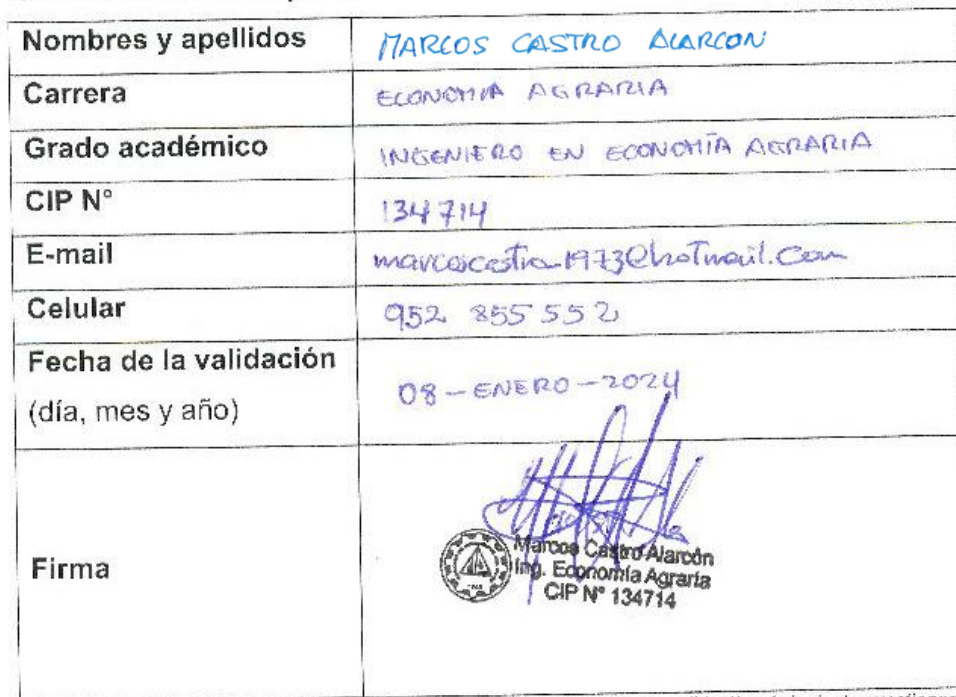 Nombres y apellidos MARCOS CASTRO ALARCON
Carrera ECONOMIA AGRARIA
Grado académico INGENIERO EN ECONOMÍA AGRARIA
CIP N° 134714
E-mail marcoscastro-1973@hotmail.com
Celular 952 855 552
Fecha de la validación
(día, mes y año) 08-ENERO-2024
Firma
Marcos Castro Alarcón
Ing. Economía Agraria
CIP N° 134714